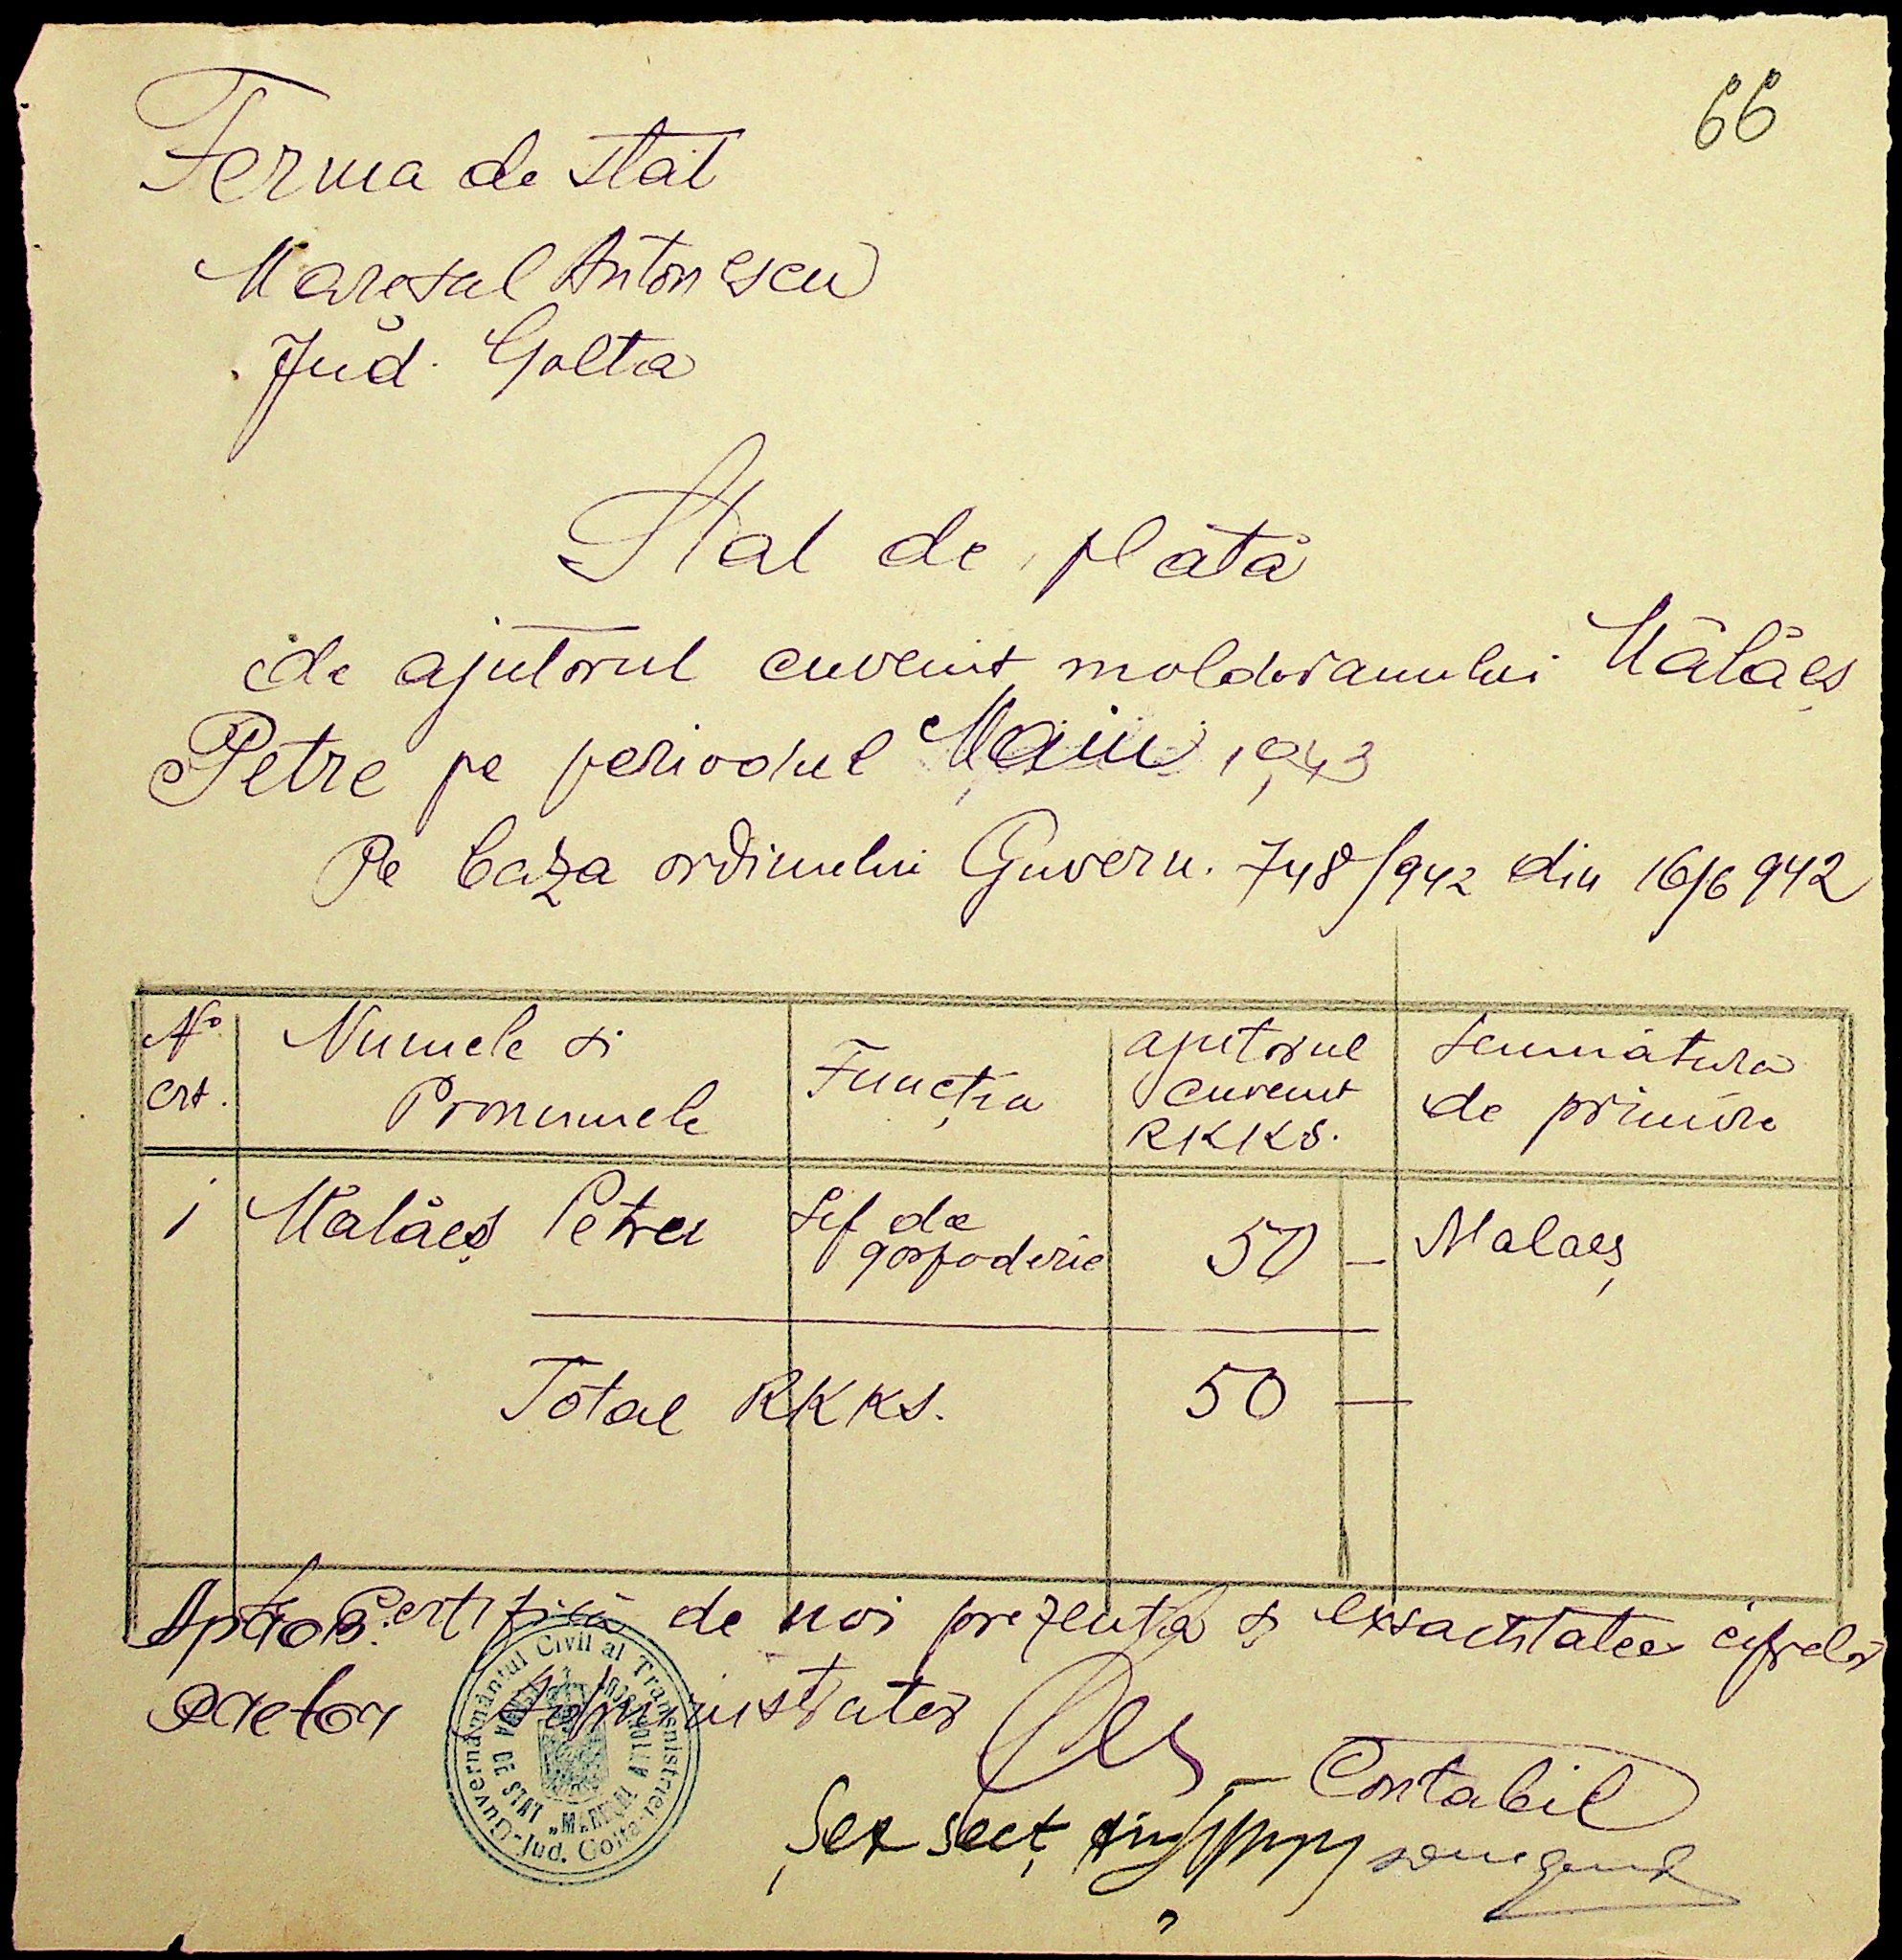 66
Ferma de stat
Mareșal Antonescu
Jud. Golta
Stat de plată
de ajutorul cuvenit moldovanului Mălăeș
Petre pe periodul Maiu 1943
Pe baza ordinului Guvern. 748/942 din 16/6 942
No crt. | Numele si Pronumele | Funcția | ajutorul cuvenit RKKS. | Semnătura de primire
1 | Mălăeș Petru | Sef de gospoderie | 50 — | Malaeș
Total RKKS. 50 —
Aprob. Certifică de noi prezența și exsactitatea cifrelor
Pretor Administrator
Contabil
Șef Secț
Guvernământul Civil al Transnistriei
Jud. Golta
FERMA DE STAT „MAREȘAL ANTONESCU"